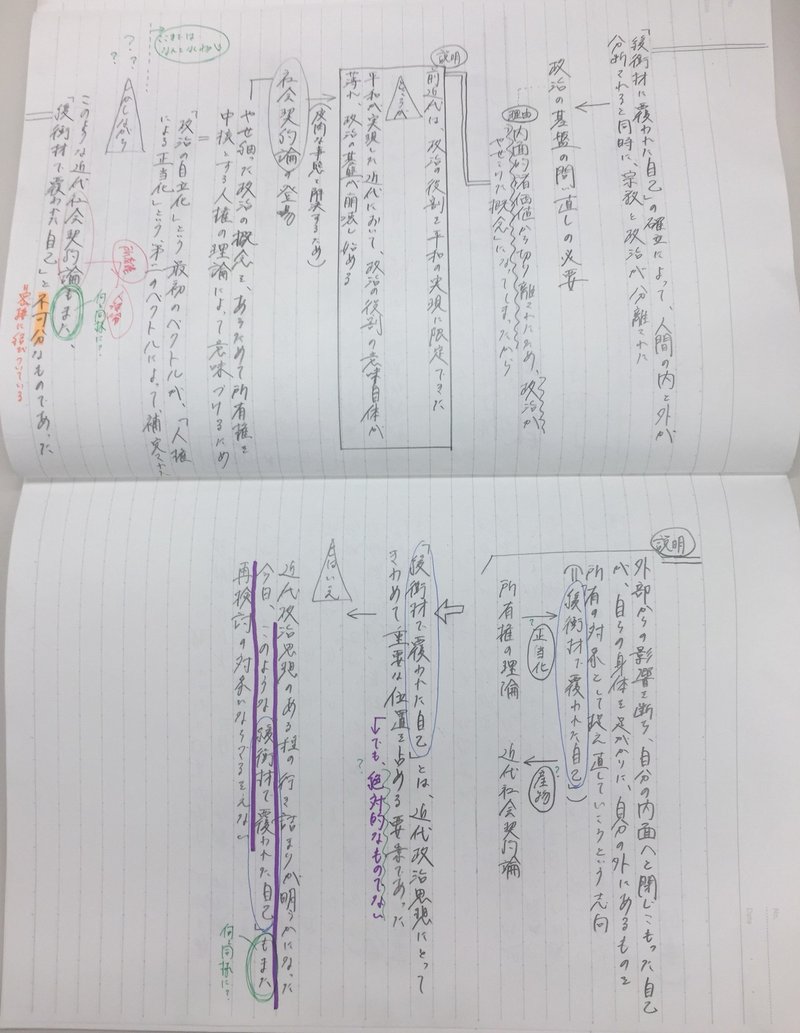 「緩衝材に覆われた自己」の確立によって、人間の内と外が
分断されると同時に、宗教と政治が分離された
政治の基盤の問い直しの必要
理由
内面的な価値から切り離されたため、政治が
やせ細った概念になってしまったから
説明
前近代は、政治の役割を平和の実現に限定できた
ところが
平和が実現した近代において、政治の役割の意味自体が
薄れ、政治の基盤が崩壊し始める
(
な事態を解決するため)
社会契約論の登場
やせ細った政治の概念を、あらためて所有権を
中核とする人権の理論によって意味づけるため
=
「政治の自立化」という最初のベクトルが、「人権
による正当化」という、第二のベクトルによって、補完された
ここまでは
なんとなくわかる
だが、しかし
?
?
このような近代社会契約論もまた、
「緩衝材で覆われた自己」と不可分なものであった
所有権
何と同様に?
密接に結びついている
説明
外部からの影響を断ち、自分の内面へと閉じこもった自己
が、自らの身体を足がかりに、自分の外にあるものを
所有の対象として捉え直していくという志向
(=緩衝材で覆われた自己)
?
正当化
?
所有権の理論
近代社会契約論
「緩衝材で覆われた自己」とは、近代政治思想にとって
きわめて重要な位置を占める要素であった
でも、絶対的なものでない
?
とはいえ
近代政治思想のある種の行き詰まりが明らかになった
今日、このような緩衝材で覆われた自己」もまた
再検討の対象にならざるをえない
何と同様に?